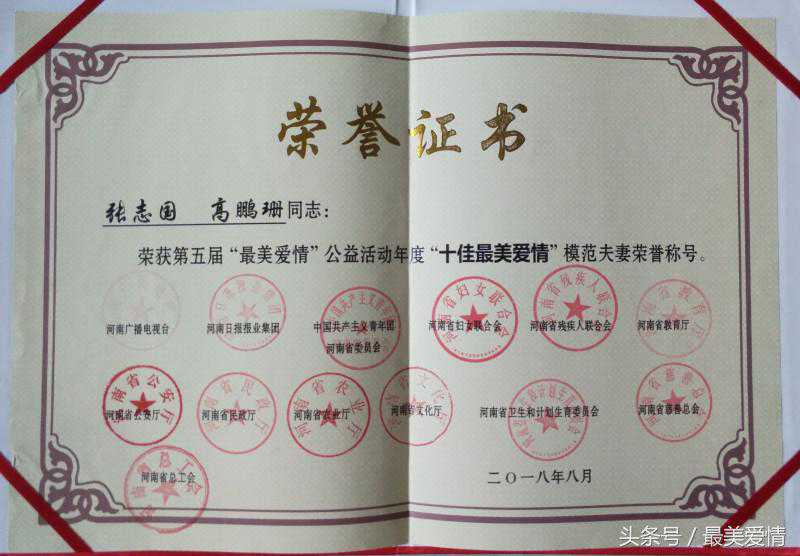 荣誉证书
张志国 高鹏珊同志：
荣获第五届“最美爱情”公益活动年度“十佳最美爱情”模范夫妻荣誉称号。
河南广播电视台 河南日报报业集团 中国共产主义青年团 河南省妇女联合会 河南省残疾人联合会 河南省教育厅
河南省委员会
河南省公安厅 河南省民政厅 河南省农业厅 河南省文化厅 河南省卫生和计划生育委员会 河南省慈善总会
河南省总工会
二〇一八年八月
头条号／最美爱情